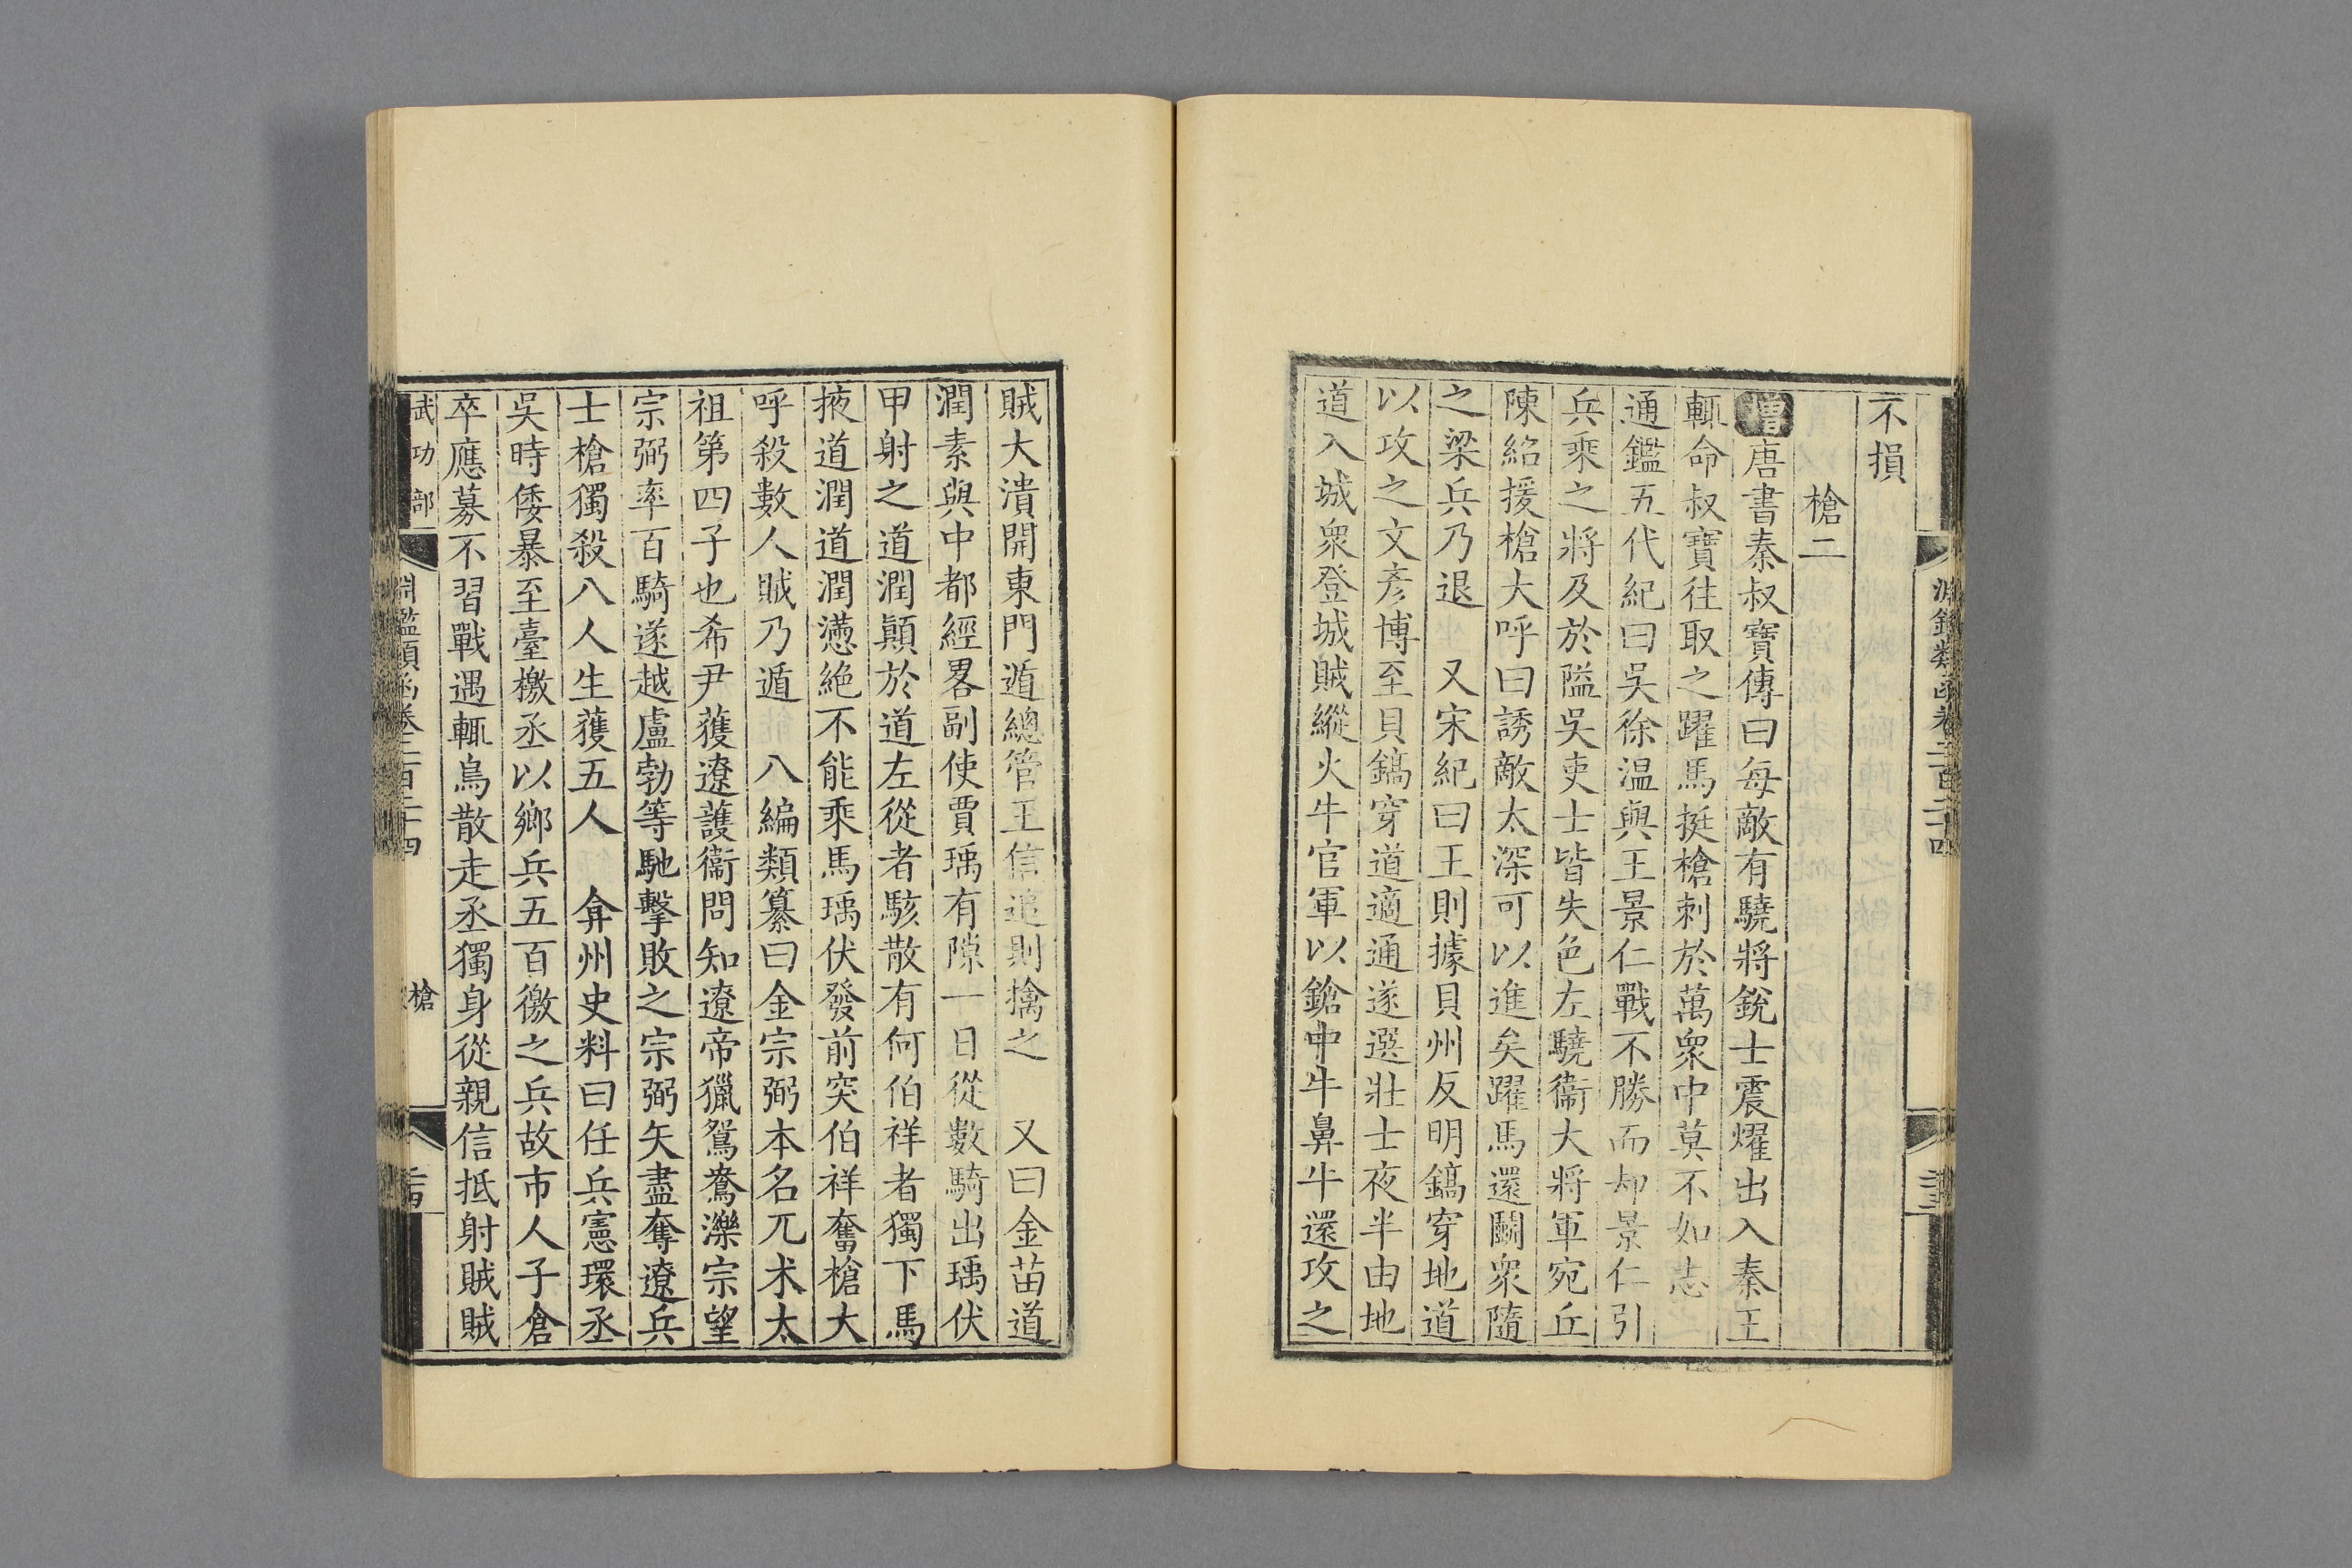 淵鑑類函卷二百二十四
不損
槍二
增唐書秦叔寶傳曰每敵有驍將銳士震燿出入秦王
輒命叔寶往取之躍馬挺槍刺於萬衆中莫不如志
通鑑五代紀曰吳徐温與王景仁戰不勝而却景仁引
兵乘之將及於隘吳吏士皆失色左驍衞大將軍宛丘
陳紹援槍大呼曰誘敵太深可以進矣躍馬還鬭衆隨
之梁兵乃退 又宋紀曰王則據貝州反明鎬穿地道
以攻之文彥博至貝鎬穿道適通遂選壯士夜半由地
道入城衆登城賊縱火牛官軍以鎗中牛鼻牛還攻之
賊大潰開東門遁總管王信追則擒之 又曰金苗道
潤素與中都經畧副使賈瑀有隙一日從數騎出瑀伏
甲射之道潤顚於道左從者駭散有何伯祥者獨下馬
掖道潤道潤懣絶不能乘馬瑀伏發前突伯祥奮槍大
呼殺數人賊乃遁 八編類纂曰金宗弼本名兀朮太
祖第四子也希尹獲遼護衞問知遼帝獵鴛鴦濼宗望
宗弼率百騎遂越盧勃等馳擊敗之宗弼矢盡奪遼兵
士槍獨殺八人生獲五人 弇州史料曰任兵憲環丞
吳時倭暴至臺檄丞以鄉兵五百徼之兵故市人子倉
卒應募不習戰遇輒鳥散走丞獨身從親信抵射賊賊
武功部
淵鑑類函卷二百二十四
槍